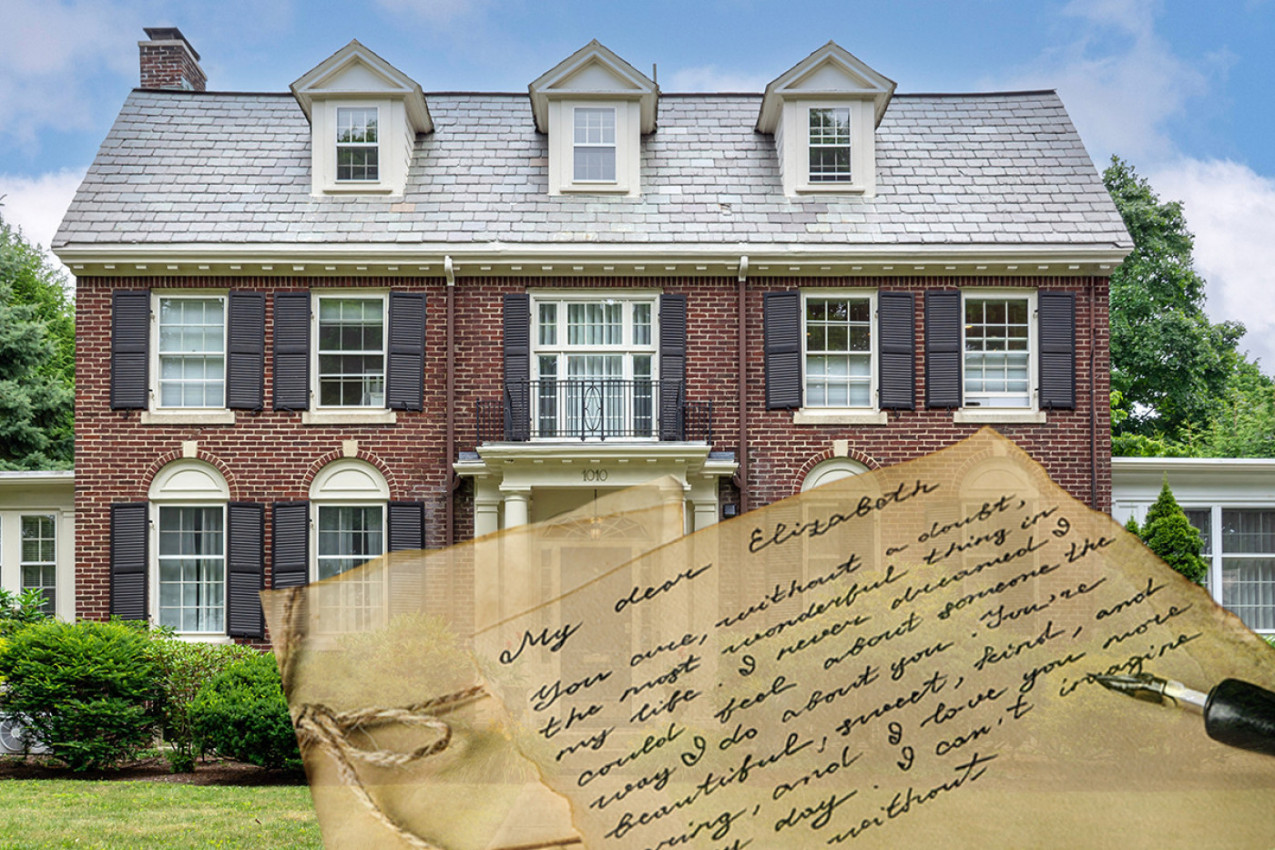 1010
My dear Elizabeth
You are, without a doubt,
the most wonderful thing in
my life. I never dreamed I
could feel about someone the
way I do about you. You're
beautiful, sweet, kind, and
and I love you more
day. I can't imagine
without